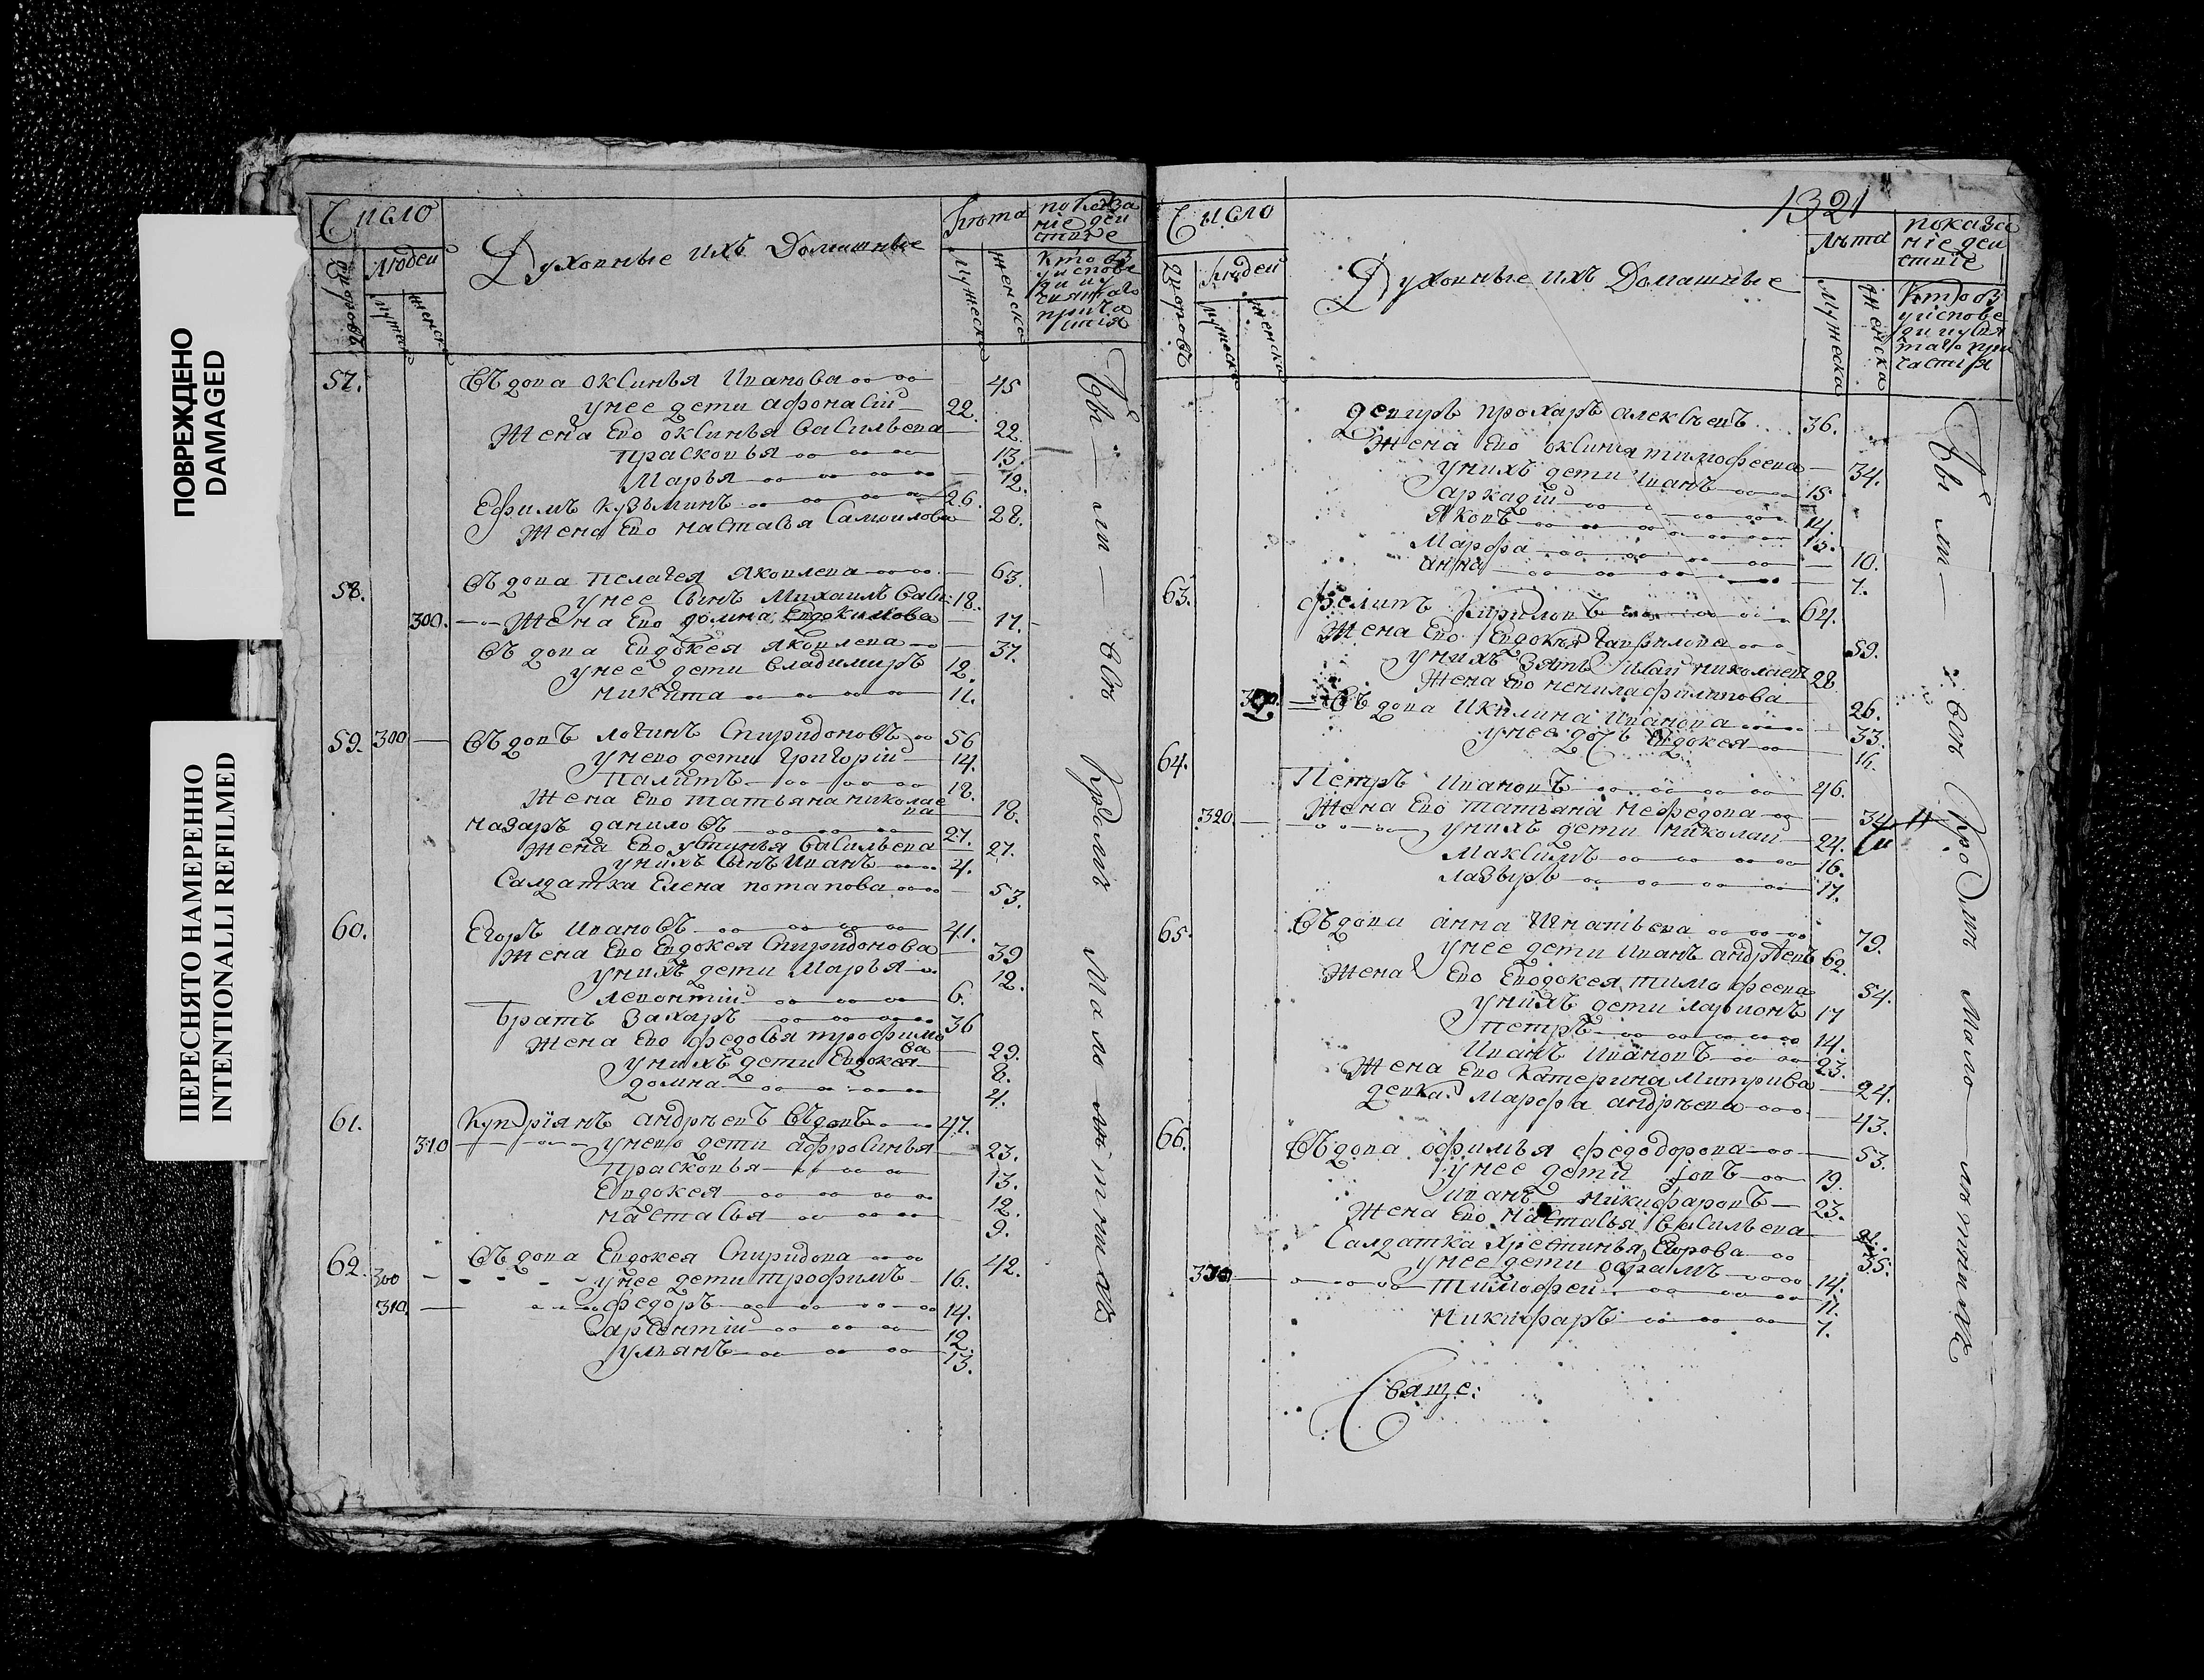 ПОВРЕЖДЕНО
DAMAGED
ПЕРЕСНЯТО НАМЕРЕННО
INTENTIONALLI REFILMED
Число
Дворовъ
Людей
Мужеска
Женска
Духовные ихъ Домашные
Лѣта
Мужеска
Женска
показа
ніе дей
ствіе
Кто оз
у исповѣ
ди и у
святаго
прича
стія
57. Вѣдова оксинья Иванова 45
у нее дети афонасій 22.
Жена Ево оксинья васильева 22.
прасковья 13.
Марья 12.
Ефимъ кузьминъ 26.
Жена Ево настасья Самоилова 28.
58. Вѣдова пелагея Яковлева 63.
у нее сынъ Михаилъ васи: 18.
300. Жена Ево домна Евдокимова 17.
Вѣдова Евдокея Яковлева 37.
у нее дети владимиръ 12.
никита 11.
59. 300 Вѣдовъ логинъ Спиридоновъ 56
у нево дети григорій 14.
палитъ 18.
Жена Ево татьяна николае
ва 18.
назаръ даниловъ 27.
Жена Ево устинья васильева 27.
у нихъ сынъ Иванъ 4.
Салдатка Елена потапова 53.
60. Егоръ Ивановъ 41.
Жена Ево Евдокея Спиридонова 39
у нихъ дети Марья 12.
левонтій 6.
братъ Захаръ 36
Жена Ево федосья трофимо
ва 29.
у нихъ дети Евдокея 8.
домна 4.
61. Купріянъ андрѣевъ вѣдовъ 47.
310 у нево дети афросинья 23.
прасковья 13.
Евдокея 12.
настасья 9.
62. Вѣдова Евдокея Спиридова 42.
300 у нее дети трофимъ 16.
310. федоръ 14.
арсентій 12.
ульянъ 13.
Все Кромѣ Малолѣтныхъ
1321
Число
Дворовъ
Людей
Мужеска
Женска
Духовные ихъ Домашные
Лѣта
Мужеска
Женска
показа
ніе дей
ствіе
Кто оз
у испове
ди и у свя
таго при
частия
деверь прохаръ алексѣевъ 36.
Жена Ево оксинія тимофеева 34.
у нихъ дети Иванъ 15.
аркадій 14.
Яковъ 13.
Марфа 10.
анна 7.
63. филипъ Кириловъ 64.
Жена Ево Евдокея 59.
у нихъ зять николаевъ 28
Жена Ево ненила филипова 26.
Вѣдова Икилина Иванова 33.
у нее дочь Евдокея 16.
64. Петръ Ивановъ 46.
Жена Ево татьяна нефедова 34
320 у нихъ дети николай 24.
Максимъ 16.
лазырь 17.
65. Вѣдова анна Игнатьева 79.
у нее дети Иванъ андрѣевъ 62.
Жена Ево Евдокея тимофеева 54.
у нихъ дети ларионъ 17
петръ 14.
Иванъ Ивановъ 23.
Жена Ево Катерина Митрива 24.
девка Марфа андрѣева 43.
66. Вѣдова офимья федодорова 53.
у нее дети Iовъ 19.
Иванъ никифаровъ 23.
Жена Ево настасья василѣева
Салдатка хрестинья Егорова 35.
у нее дети ефрамъ 14.
330 тимофей 11.
никифаръ 7.
Кромѣ Мало лѣтныхъ
Свяще: